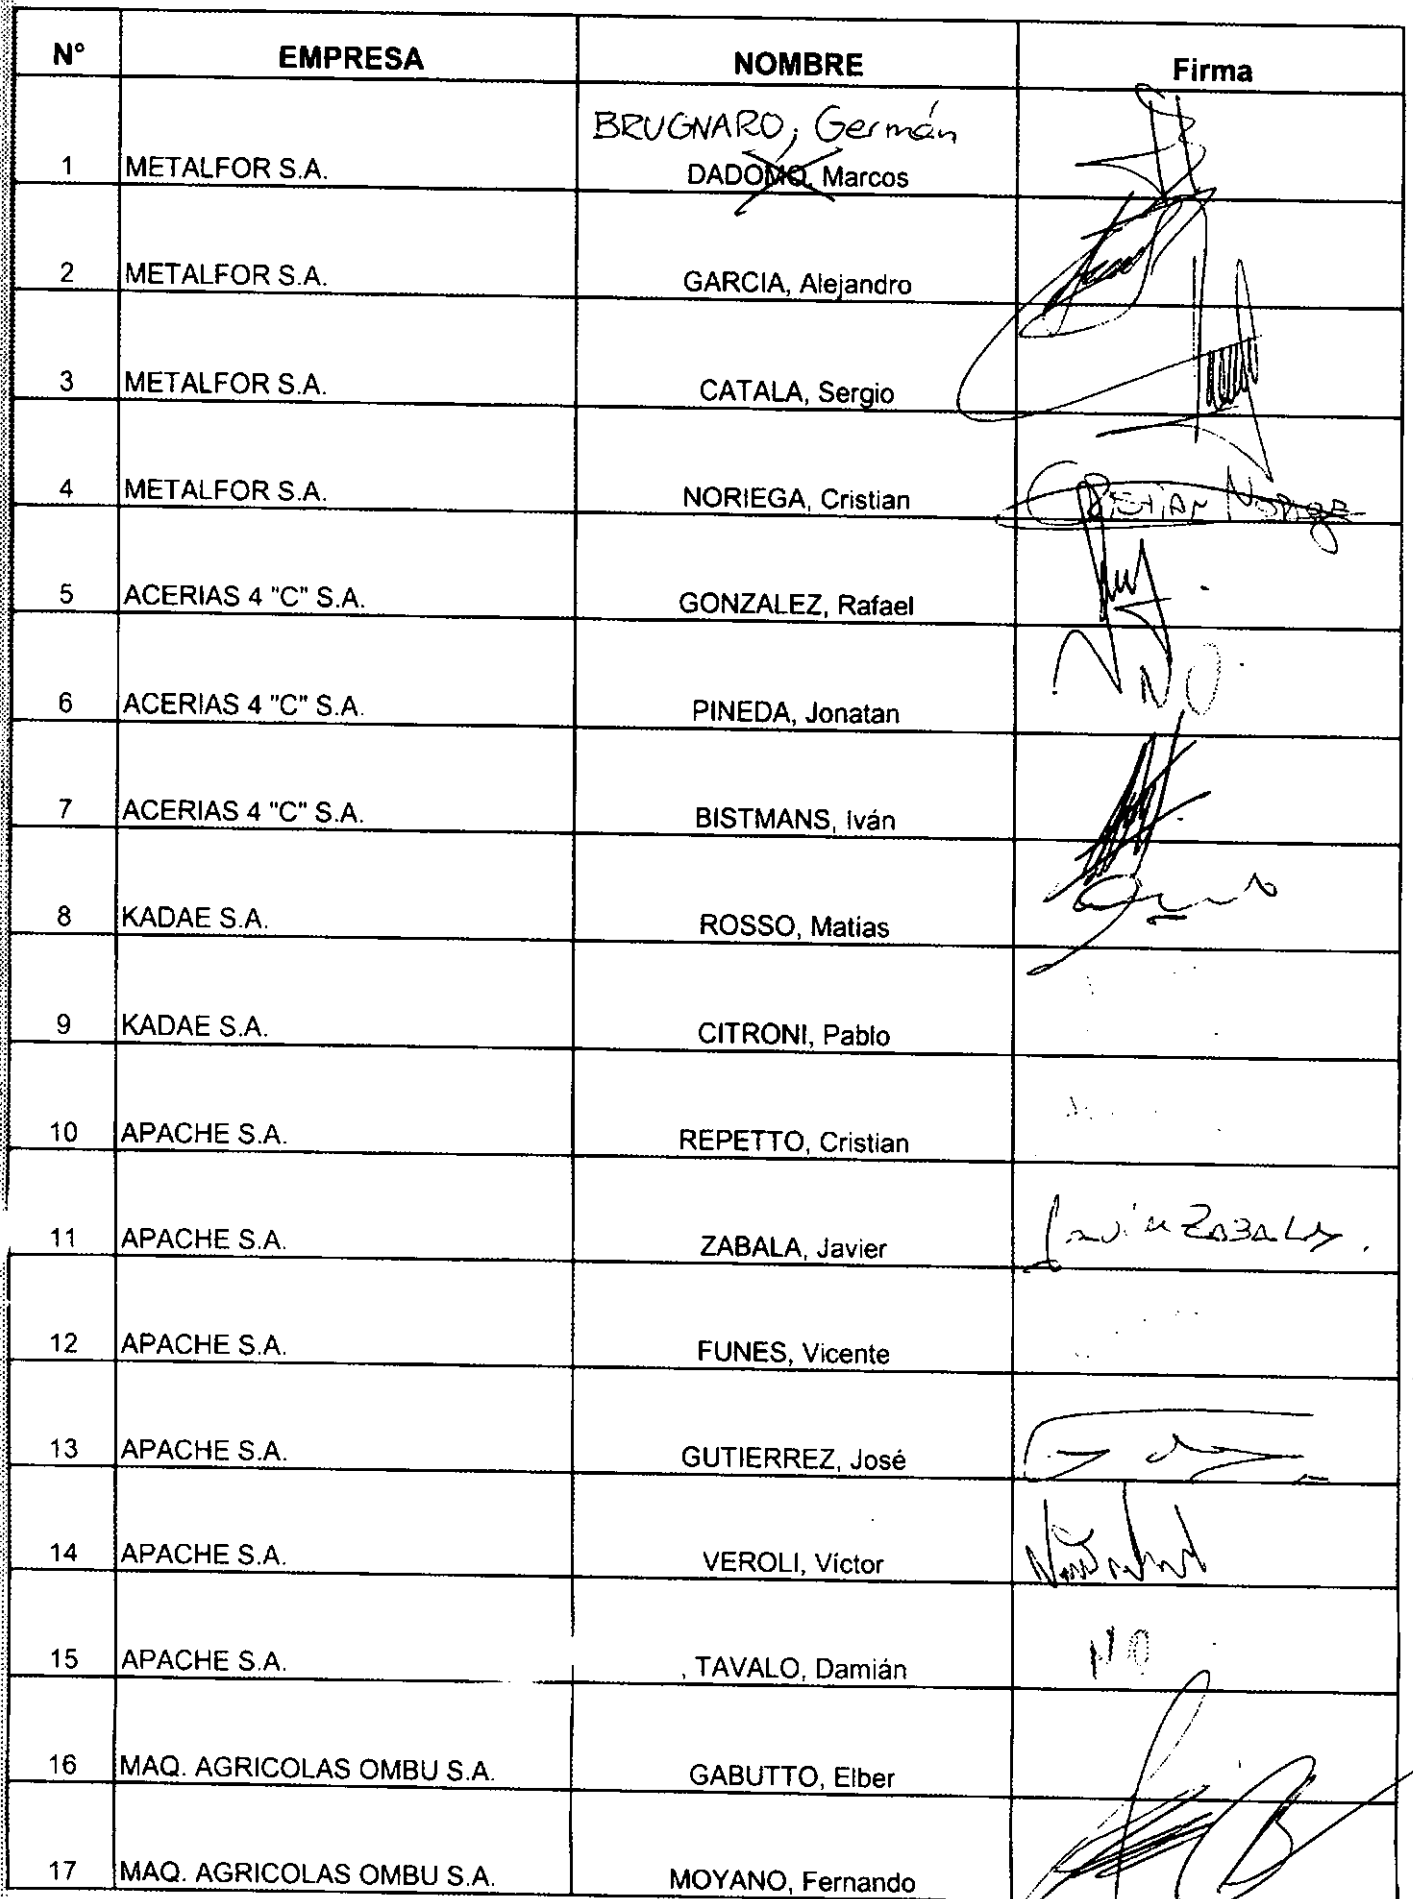 N° EMPRESA NOMBRE Firma
BRUGNARO, Germán
1 METALFOR S.A. DADOMO, Marcos
2 METALFOR S.A. GARCIA, Alejandro
3 METALFOR S.A. CATALA, Sergio
4 METALFOR S.A. NORIEGA, Cristian Cristian Noriega
5 ACERIAS 4 "C" S.A. GONZALEZ, Rafael
6 ACERIAS 4 "C" S.A. PINEDA, Jonatan NO
7 ACERIAS 4 "C" S.A. BISTMANS, Iván
8 KADAE S.A. ROSSO, Matias
9 KADAE S.A. CITRONI, Pablo
10 APACHE S.A. REPETTO, Cristian
11 APACHE S.A. ZABALA, Javier Javier ZABALA.
12 APACHE S.A. FUNES, Vicente
13 APACHE S.A. GUTIERREZ, José
14 APACHE S.A. VEROLI, Víctor
15 APACHE S.A. TAVALO, Damián NO
16 MAQ. AGRICOLAS OMBU S.A. GABUTTO, Elber
17 MAQ. AGRICOLAS OMBU S.A. MOYANO, Fernando